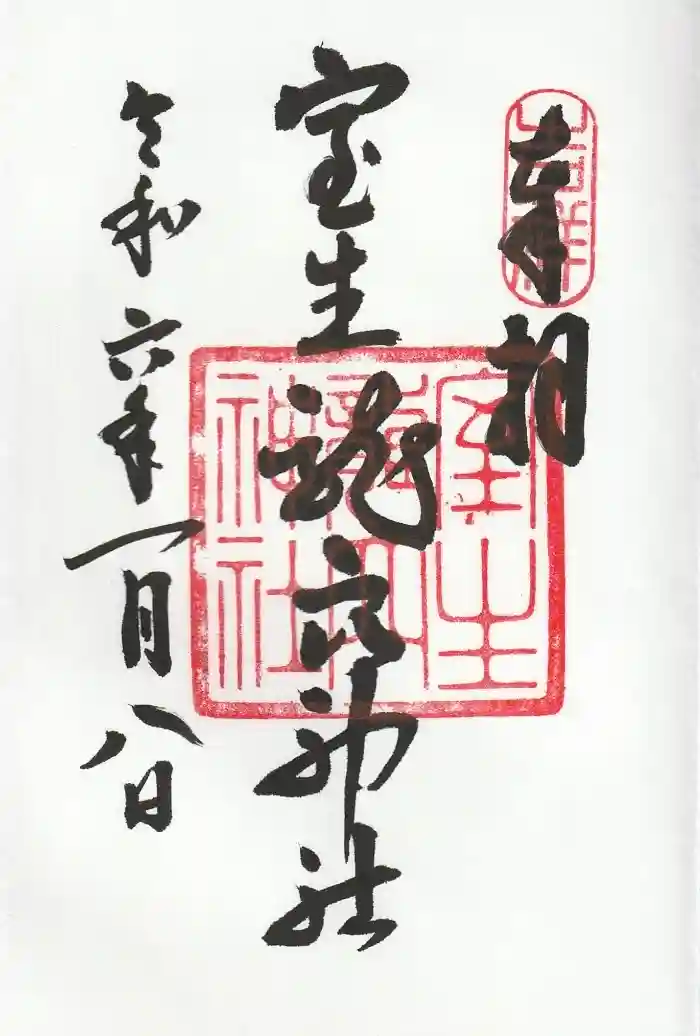 奉拝
吉祥
室生龍穴神社
室生龍穴神社
令和六年一月八日